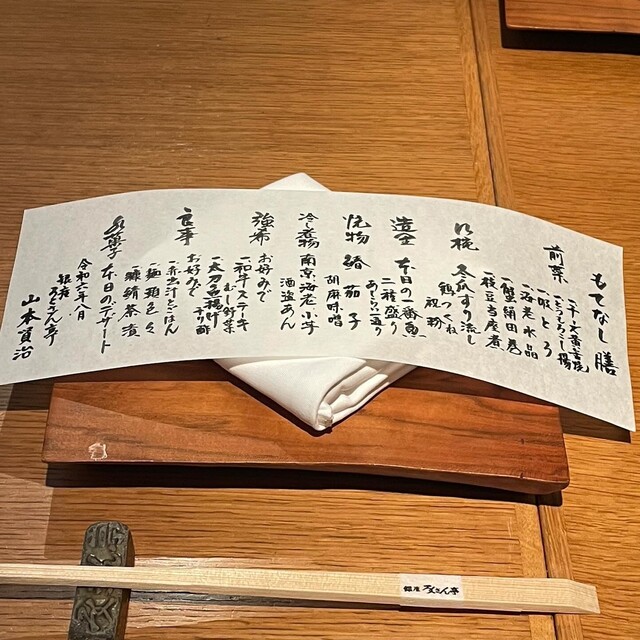 もてなし膳
前菜
一、とうもろこし揚
一、海老水晶
一、蟹絹田巻
一、枝豆当座煮
お椀
冬瓜すり流し
鶴つくね
造里
本日の一番魚
二種盛り
あしらい一通り
焼物
茄子
胡麻味噌
冷し煮物
南京 海老 小芋
酒盗あん
強肴
お好みで
一、和牛ステーキ
むし野菜
一、太刀魚揚げ
お食事
お好みで
一、赤出汁ごはん
一、麺 種色々
一、鯖茶漬
水菓子
本日のデザート
令和六年八月
銀座 ろくさん亭
山本真治
銀座 ろくさん亭